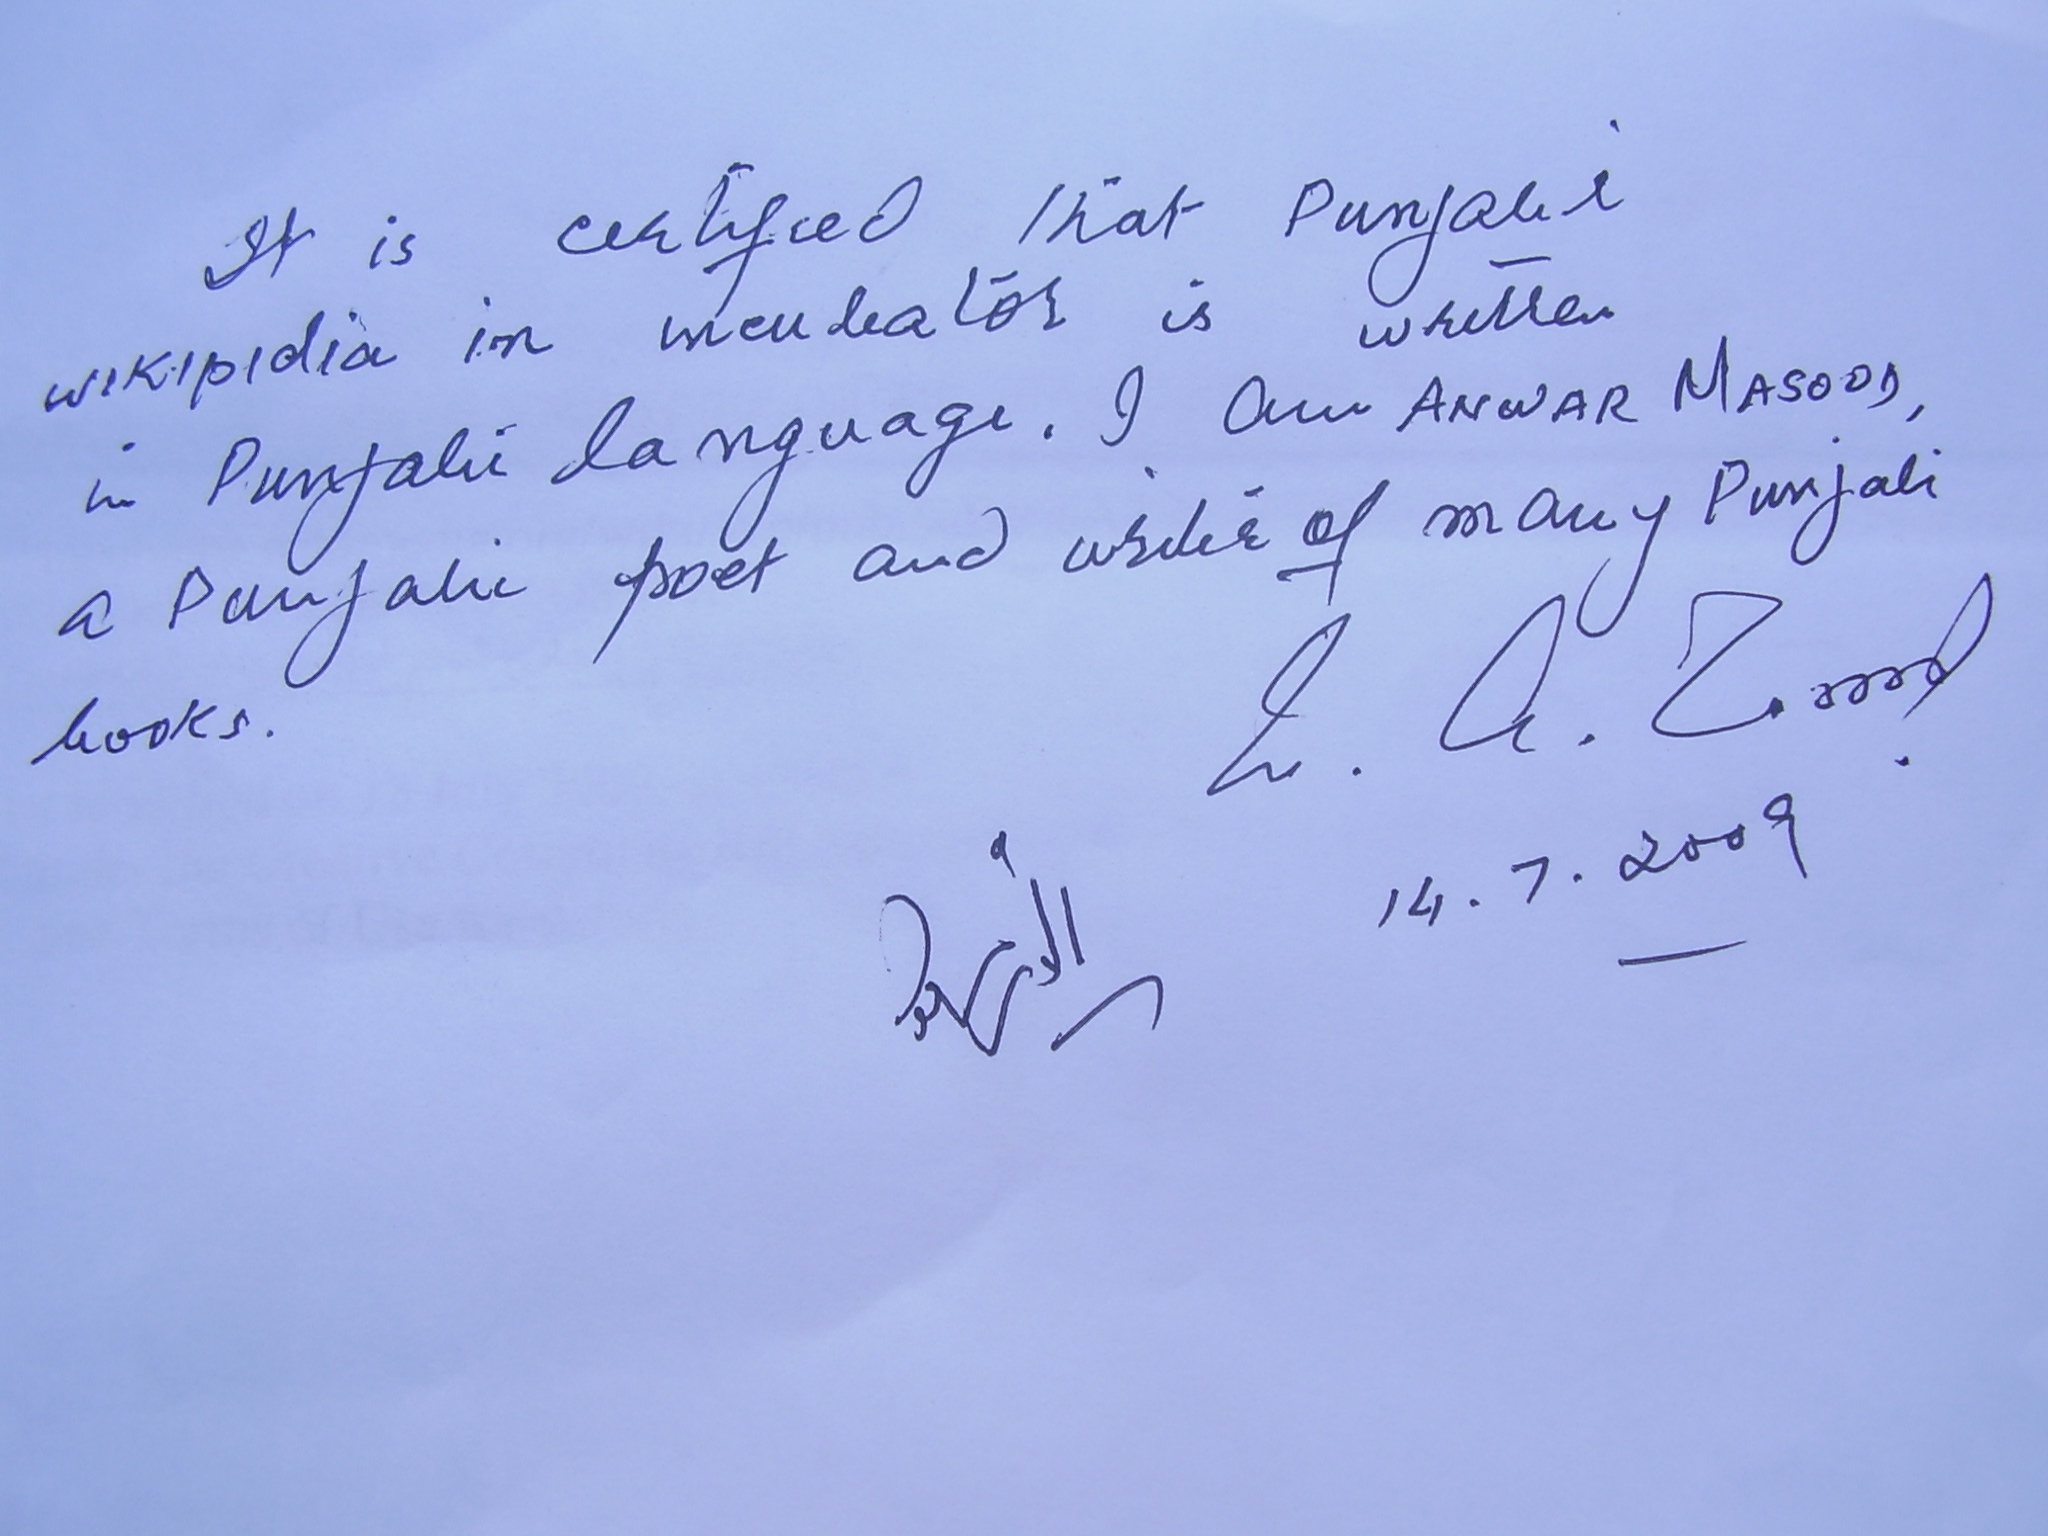 It is certified that Punjabi
wikipidia in incubator is written
in Punjabi language. I am ANWAR MASOOD,
a Punjabi poet and writer of many Punjabi
books.
14.7.2009